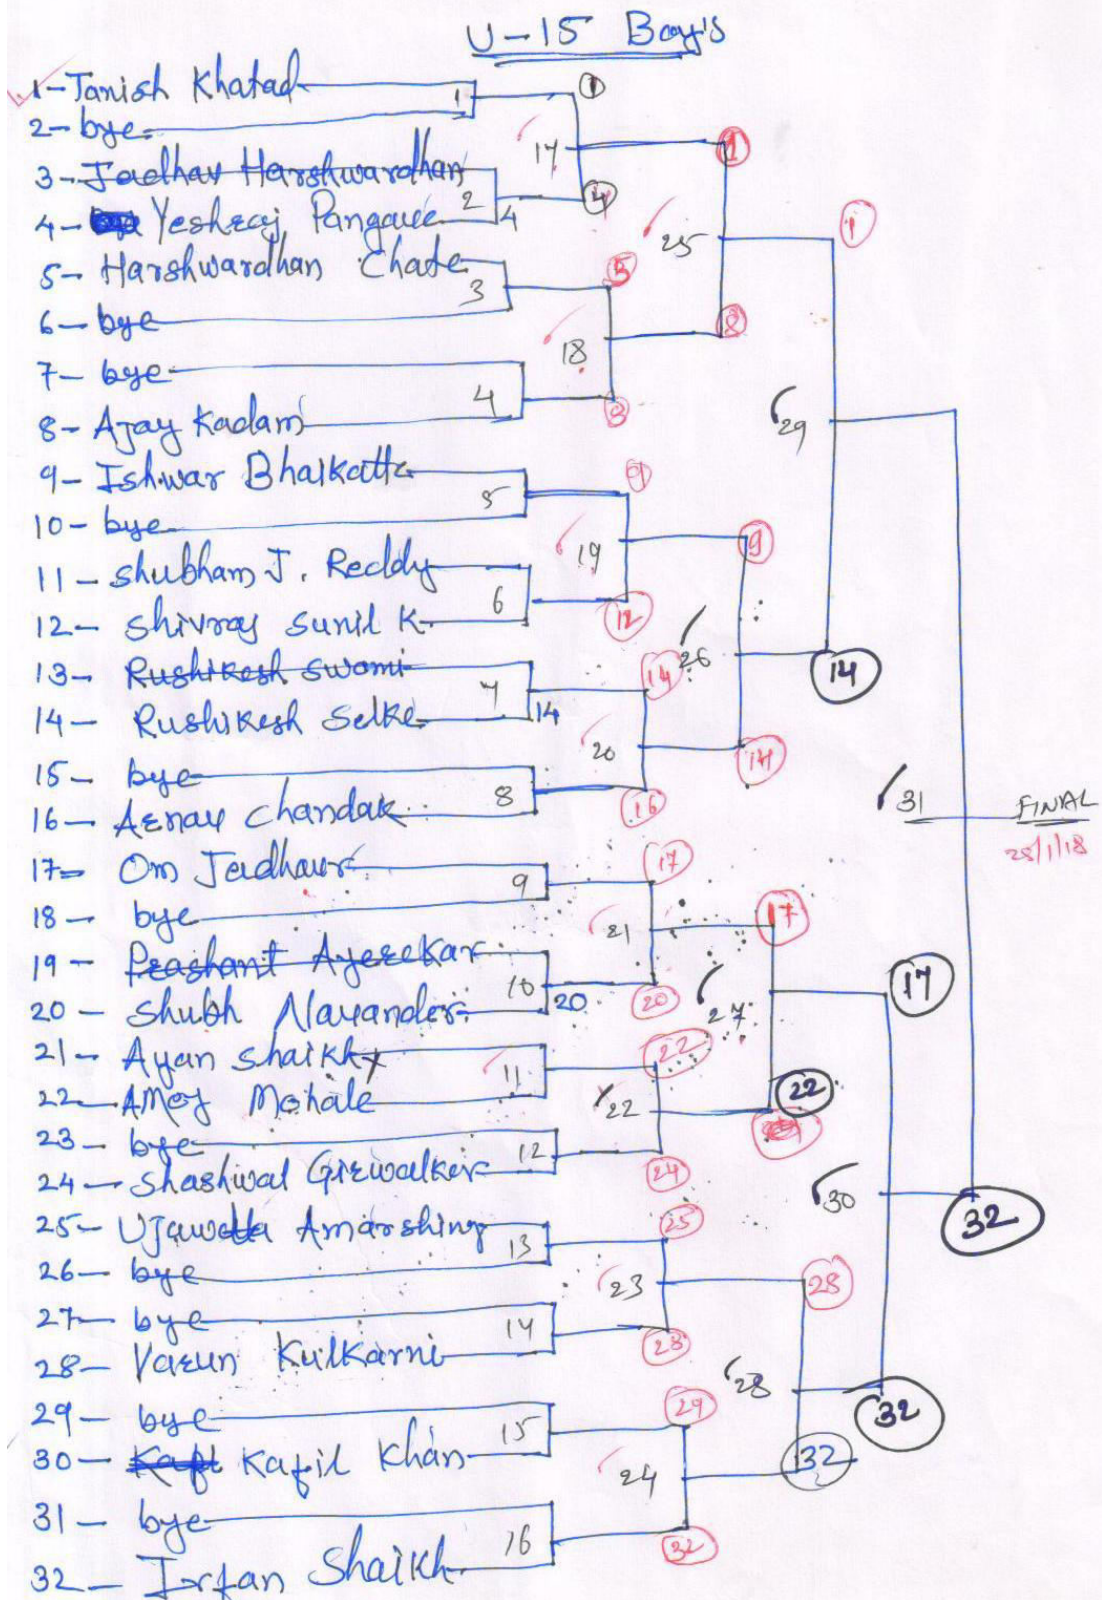 U-15 Boy's
1- Tanish Khatad
2- bye
3- Jadhav Harshwardhan
4- Yeshraj Pangave
5- Harshwardhan Chate
6- bye
7- bye
8- Ajay Kadam
9- Ishwar Bhalkatte
10- bye
11- Shubham J. Reddy
12- Shivraj Sunil K.
13- Rushikesh Swami
14- Rushikesh Selke
15- bye
16- Arnav Chandak
17- Om Jadhavr
18- bye
19- Prashant Ayerekar
20- Shubh Navander
21- Ayan Shaikh
22- Amey Mohale
23- bye
24- Shashwat Girwalker
25- Amarshing
26- bye
27- bye
28- Varun Kulkarni
29- bye
30- Kafil Khan
31- bye
32- Irfan Shaikh
1
2
4
3
4
5
6
7
14
8
9
10
20
11
12
13
14
15
16
1
17
4
5
18
8
9
19
12
14
20
16
17
21
20
22
22
24
25
23
28
29
24
32
1
25
8
9
26
14
17
27
22
28
28
32
1
29
14
17
30
32
31
32
FINAL
25/1/18